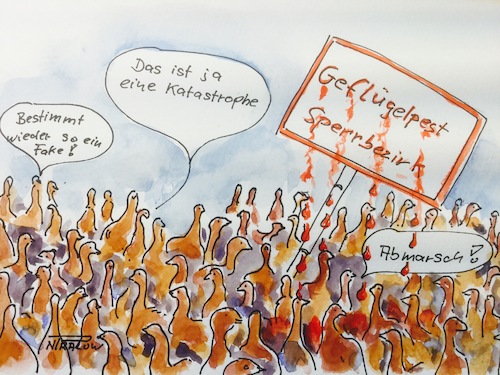 Bestimmt
wieder so ein
Fake!
Das ist ja
eine Katastrophe
Geflügelpest
Sperrbezirk
Abmarsch!